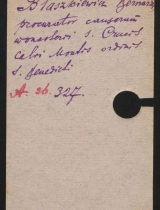 Błaszkiewicz Bernard
procurator causarum
monasterii S. Crucis
Calvi Montis ordinis
S. Benedicti
A. 26. 327.